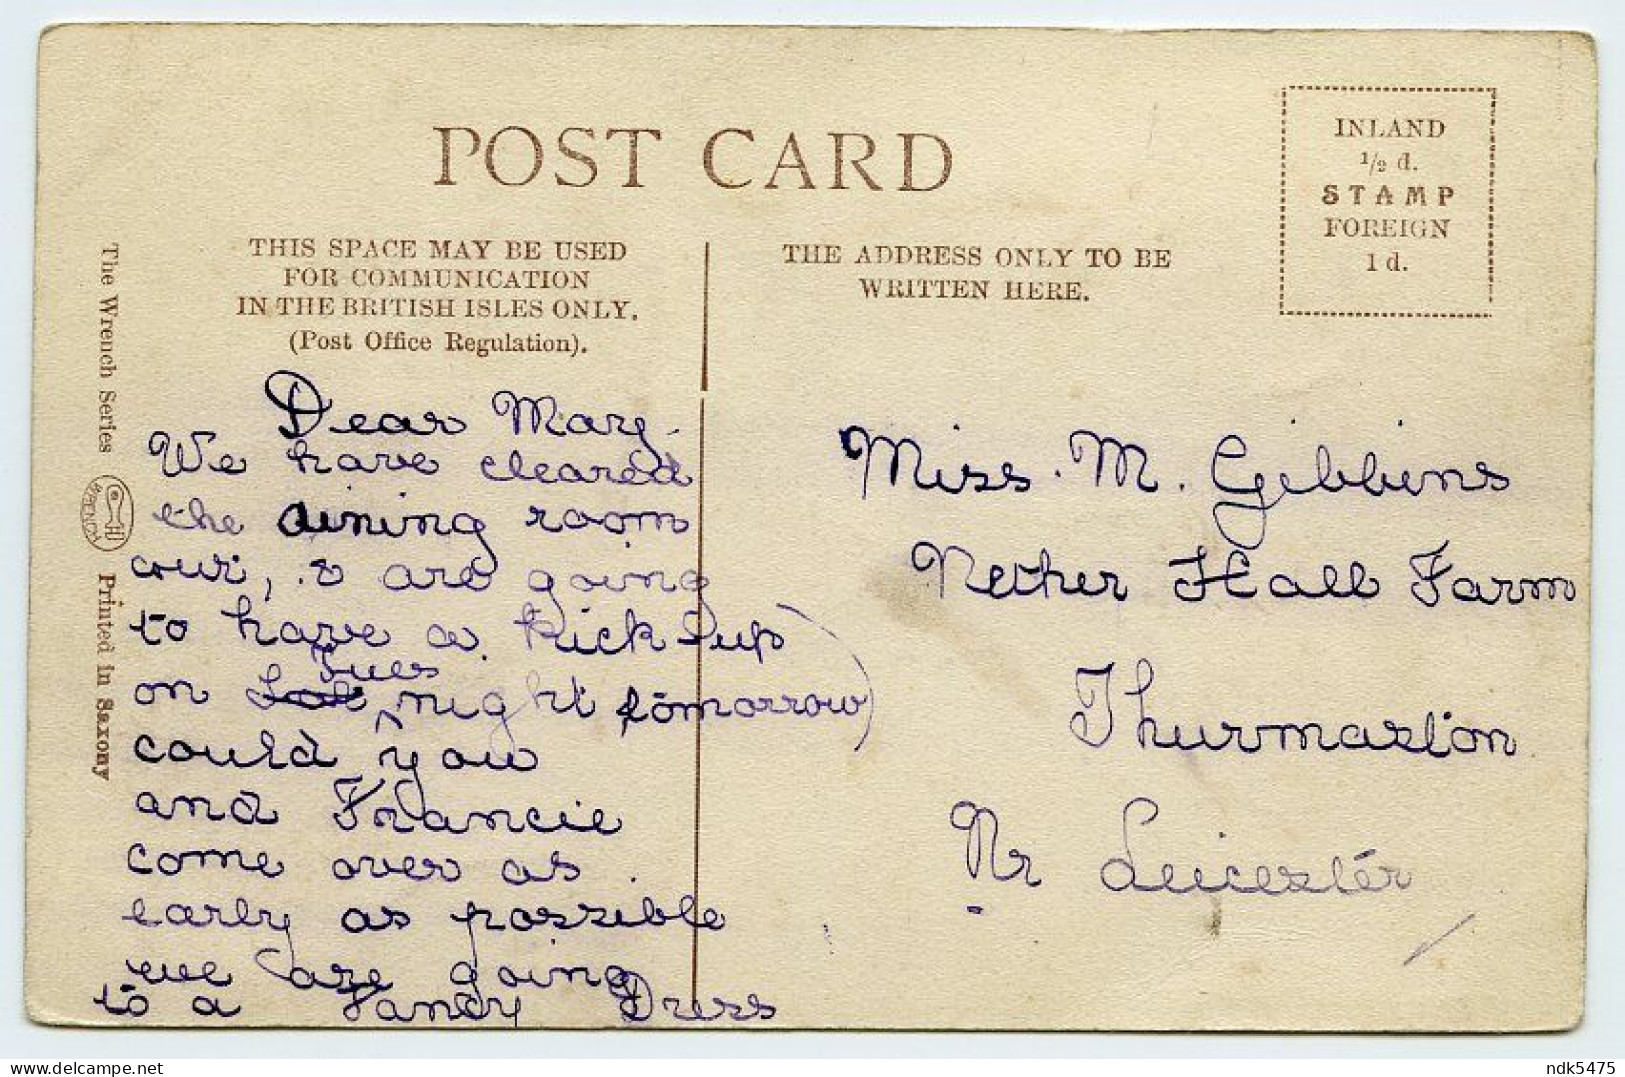 POST CARD
INLAND
1/2 d.
STAMP
FOREIGN
1 d.
THIS SPACE MAY BE USED
FOR COMMUNICATION
IN THE BRITISH ISLES ONLY.
(Post Office Regulation).
THE ADDRESS ONLY TO BE
WRITTEN HERE.
The Wrench Series
WRENCH
Printed in Saxony
Dear Mary.
We have cleared
the dining room
out, & are going
to have a kick up
on Tues night (tomorrow)
could you
and Francie
come over as
early as possible
we are going
to a Fancy Dress
Miss. M. Gibbins
Nether Hall Farm
Thurmaston
Nr Leicester
delcampe.net
ndk5475